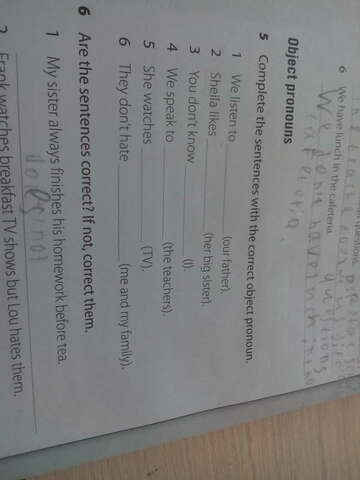 questions.
6 We have lunch in the cafeteria.
We
have lunch
Object pronouns
5 Complete the sentences with the correct object pronoun.
1 We listen to (our father).
2 Sheila likes (her big sister).
3 You don't know (I).
4 We speak to (the teachers).
5 She watches (TV).
6 They don't hate (me and my family).
6 Are the sentences correct? If not, correct them.
1 My sister always finishes his homework before tea.
2 Frank watches breakfast TV shows but Lou hates them.